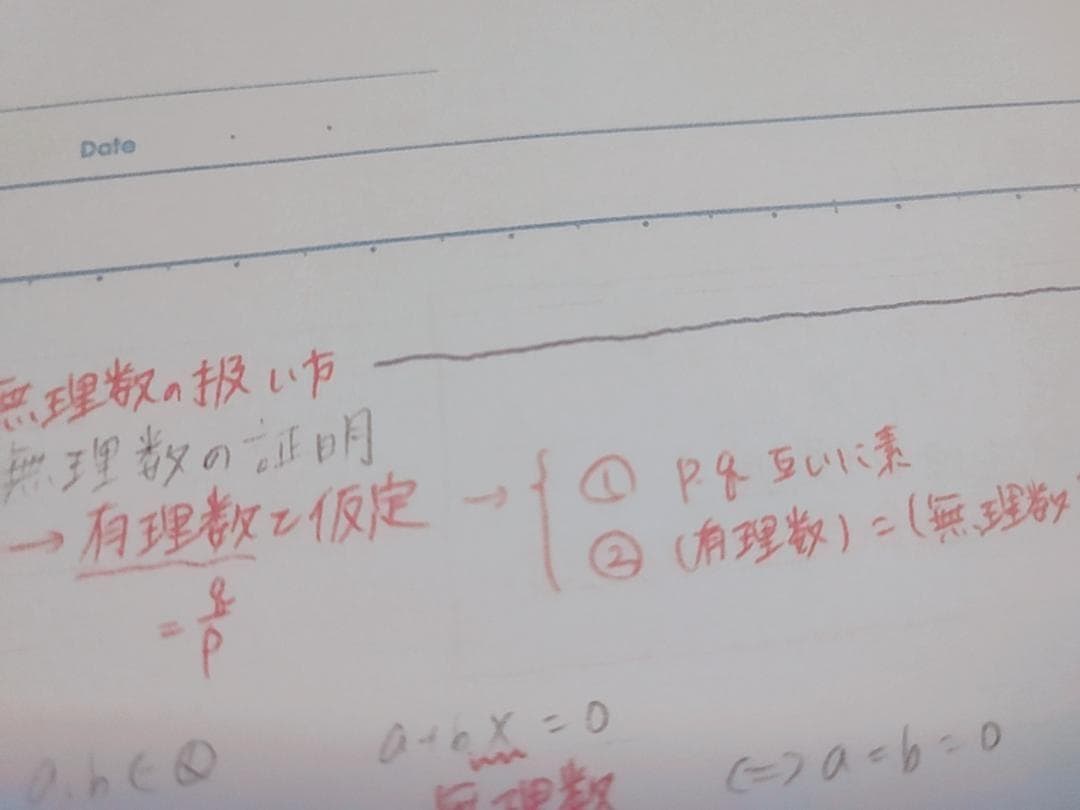 Date
無理数の扱い方
無理数の証明
→ 有理数と仮定 → { ① p.q 互いに素
② (有理数) = (無理数)
= q/p
a,b ∈ Q a+bX = 0 <=> a = b = 0
無理数